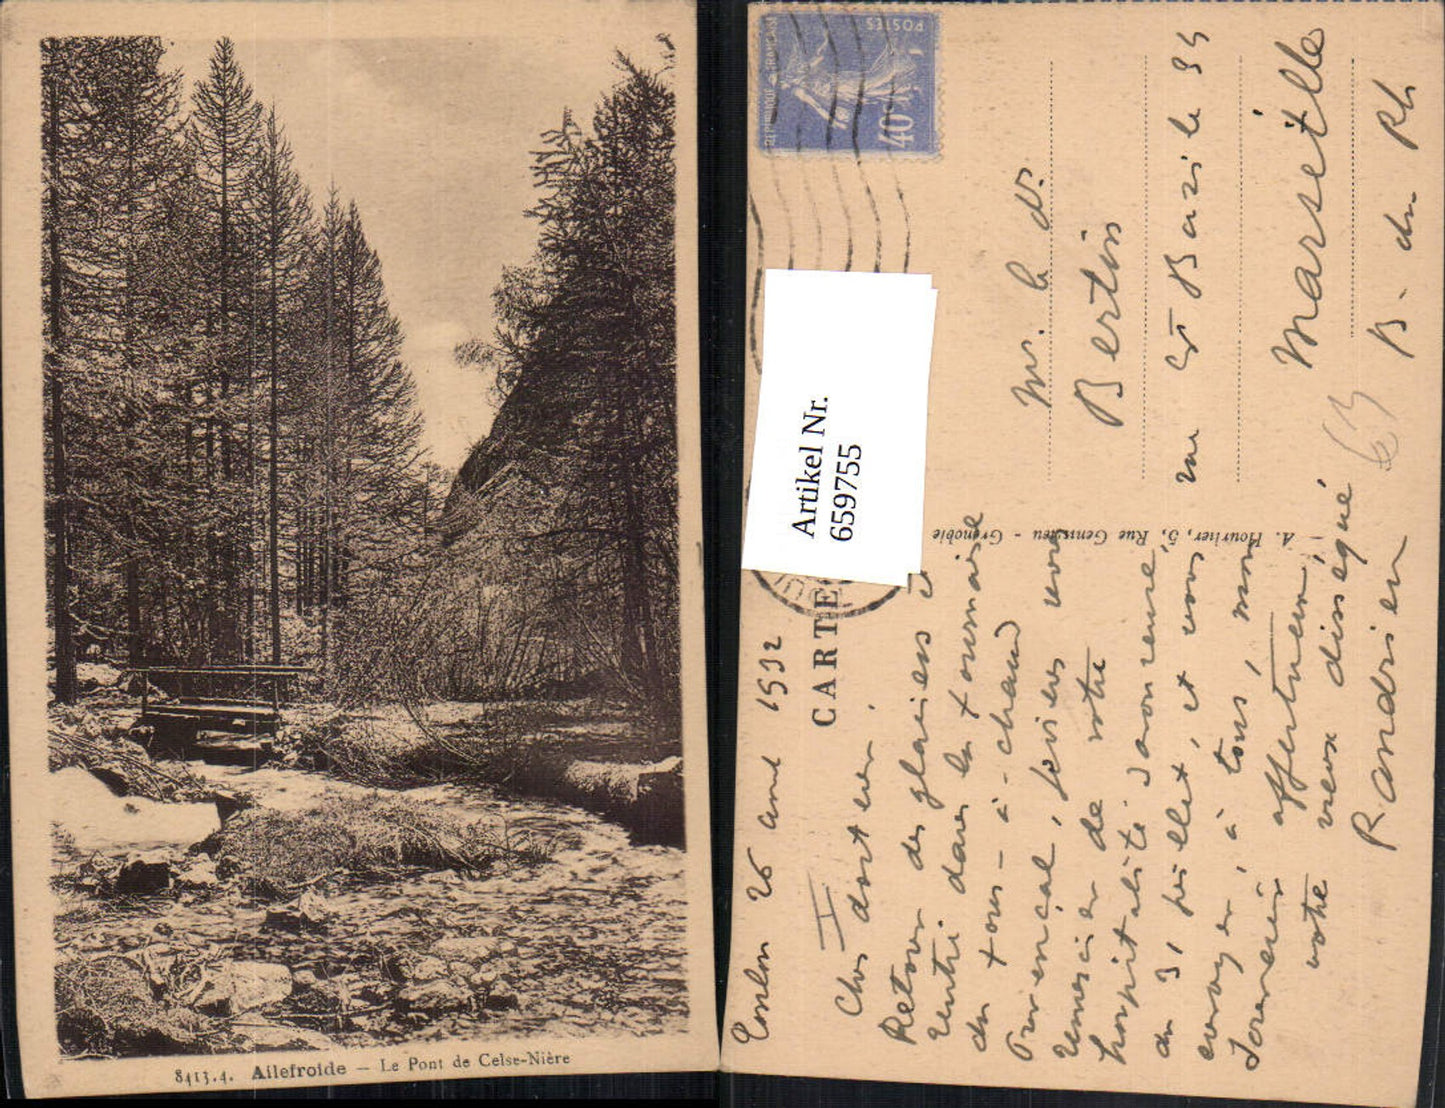 8413.4. Ailefroide – Le Pont de Celse-Nière
REPUBLIQUE FRANÇAISE
POSTES
40
Artikel Nr.
659755
CARTE
A. Mourier, 5, Rue Genissieu - Grenoble
26 1932
Cher docteur.
Retour des glaciers et
rentré dans la fournaise
du tour-à-chaud
Provençal, je viens vous
remercier de votre
hospitalité savoureuse,
du 31 juillet, et vous
envoyer, à tous, mon
souvenir affectueux,
votre vieux disséqué
Randrien
Mr. le dr.
Bertin
Bazile 94
Marseille
B. du Rh